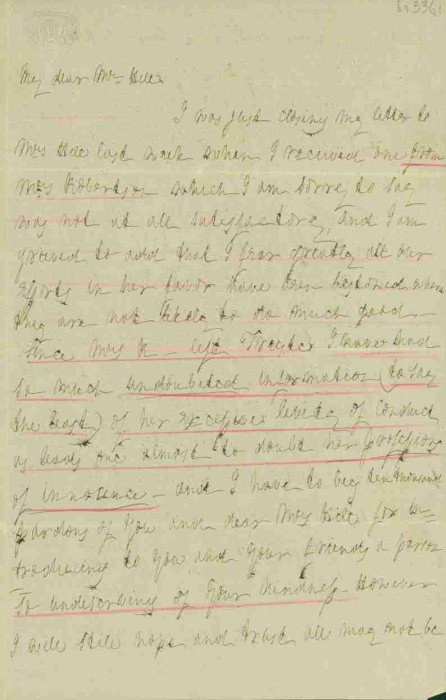 My dear Mrs Hill
I was just closing my letter to
Mrs Hill last week when I received one from
Mrs Robertson which I am sorry to say
was not at all satisfactory, and I am
grieved to add that I fear greatly all our
efforts in her favor have been bestowed where
they are not likely to do much good —
Since Mrs R — left I have had
so much undoubted information (to say
the least) of her excessive levity of conduct
as leads me almost to doubt her professions
of innocence — and I have to beg ten thousand
pardons of you and dear Mrs Hill for in-
troducing to you and your friends a person
so undeserving of your kindness. However
I will still hope and trust all may not be